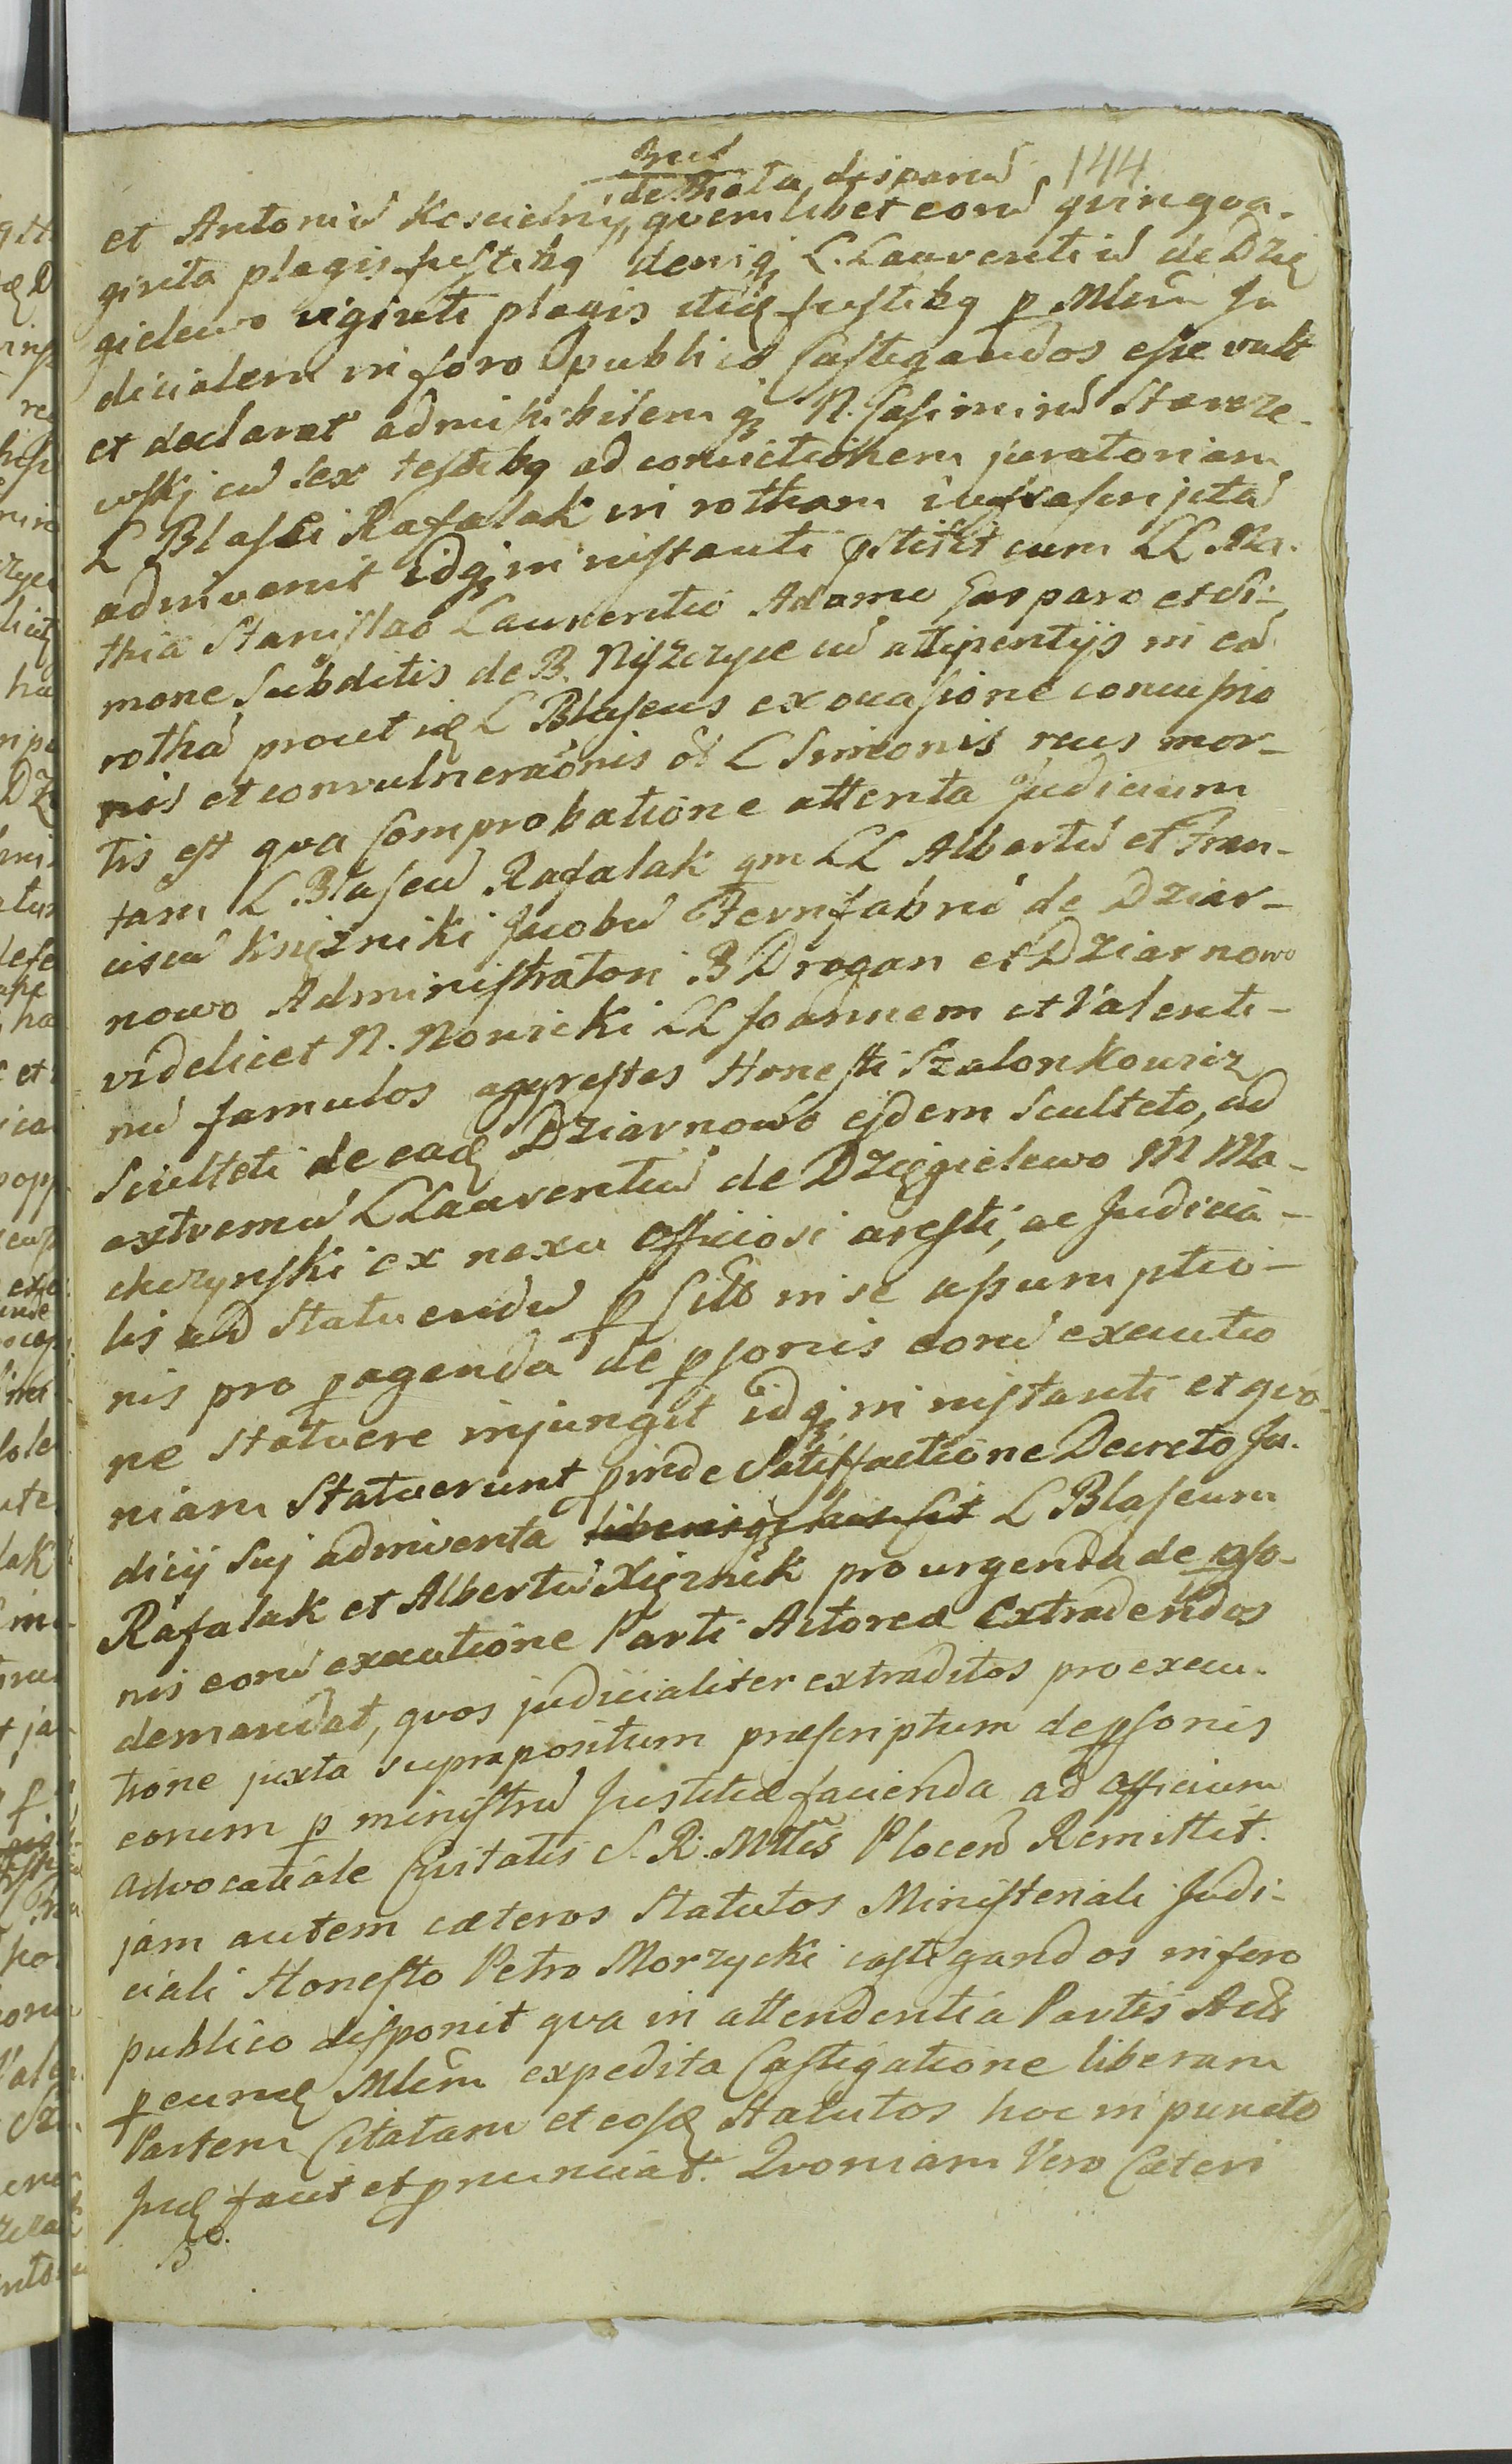 144
de Biała, disparū
et Antoniū Kościelny, quemlibet eorū quinqua-
ginta plagis fustibq deniq L. Laurentiū de Dzię
gielewo viginti plagis itiđ fustibq p Mlēm Ju
dicialem in foro publico Castigandos esse vult
et declarat admissibilemq N. Casimirū Starze-
wskj cū sex testibq ad convictionem juratoriam
L Blasei Rafalak in rotham infrascriptā
adinvenit idq in instanti pstitit cum LL. Ma-
thia Stanislao Laurentio Adamo Gasparo et Si-
mone Subditis de B. Nijzczyce cū attinentijs in eā
rothā prout iđ L Blaseus ex occasione concussio
nis et convulneraōnis ol L Simeonis reus mor-
tis est qua Comprobatione attenta Judicium
tam L Blaseū Rafalak qm LL Albertū et Fran-
ciscū Kniężniki Jacobū Ferrifabrū de Dziar-
nowo Administratori B Drogan et Dziarnowo
videlicet N. Nowicki LL Joannem et Valenti-
nū famulos agrestes Honesti Szalonkowicz
Sculteti de eađ Dziarnowo ejdem Sculteto, ad
extremū L Laurentiū de Dzięgielewo M Ma-
chczynski ex nexu Officiosi aresti, ac Judicia-
lis ad Statuendū p Citt in se assumptio-
nis pro pagenda de psonis eorū executio
ne Statuere injungit idq in instanti et quo-
niam Statuerunt pinde Satisfactione Decreto Ju-
dicij Suj adinventa L Blaseum
Rafalak et Albertū Xiężnik pro urgenda de pso-
nis eorū executione Parti Actoreæ Extradendos
demandat, quos judicialiter extraditos pro execu-
tione juxta suprapositum præscriptum de psonis
eorum p ministrū Justitiæ facienda ad Officium
Advocatiale Civitatis S. R. Mttis Plocen Remittit.
jam autem cæteros Statutos Ministeriali Judi-
ciali Honesto Petro Morzycki castigandos in foro
publico disponit qua in attendentia Partis Act
p eunđ Mlēm expedita Castigatione liberam
Partem Citatam et eosđ Statutos hoc in puncto
Juđ facit et pnunciat. Quoniam Vero Cæteri